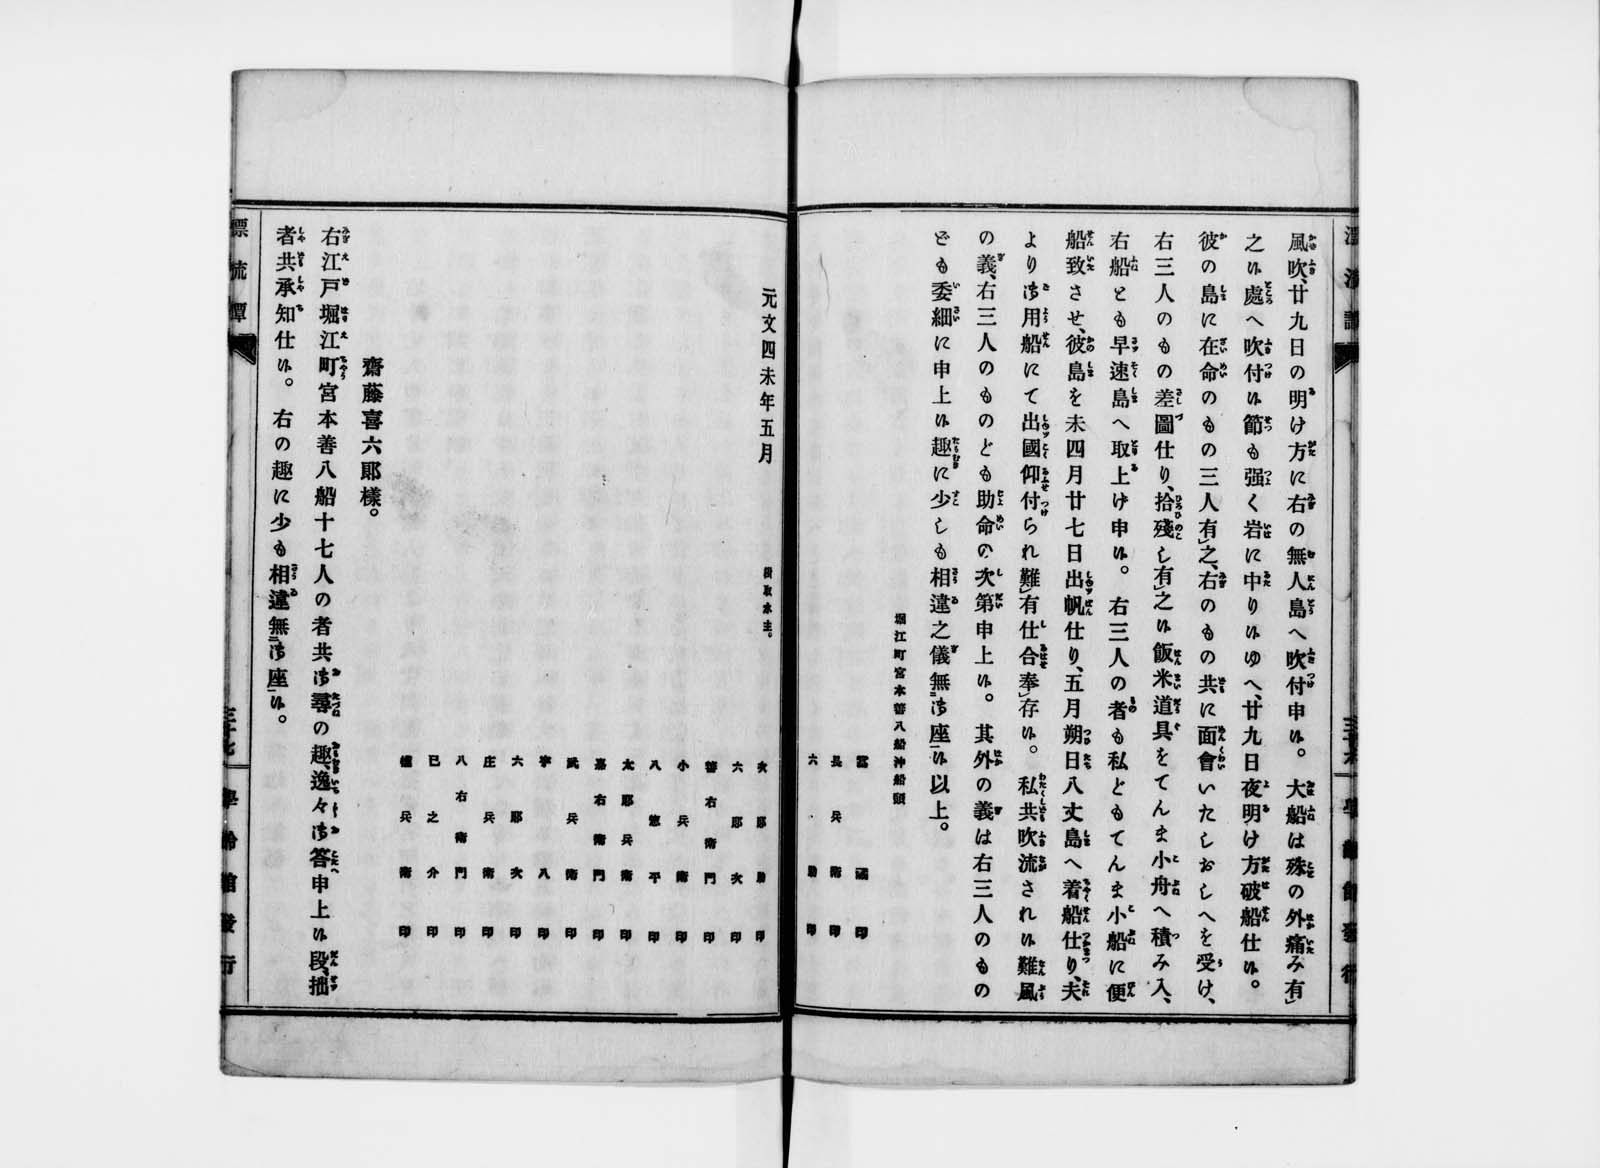 風吹、廿九日の明け方に右の無人島へ吹付申候。大船は殊の外痛み有
之候處へ吹付候節も强く岩に中り候ゆへ、廿九日夜明け方破船仕候。
彼の島に在命のもの三人有之、右のもの共に面會いたしおしへを受け、
右三人のもの差圖仕り、拾殘し有之候飯米道具をてんま小舟へ積み入、
右船とも早速島へ取上げ申候。右三人の者も私どもてんま小船に便
船致させ、彼島を未四月廿七日出帆仕り、五月朔日八丈島へ着船仕り、夫
より御用船にて出國仰付られ難有仕合奉存候。私共吹流され候難風
の義、右三人のものども助命の次第申上候。其外の義は右三人のもの
ども委細に申上候趣に少しも相違之儀無御座候以上。
堀江町宮本善八船沖船頭
富藏印
長兵衛印
六助印
元文四未年五月
楫取水主。
六郎次印
善右衛門印
小兵衛印
八惣平印
太郎兵衛印
嘉右衛門印
武兵衛印
六郎次印
庄兵衛印
八右衛門印
巳之介印
齋藤喜六郎樣。
右江戸堀江町宮本善八船十七人の者共御尋の趣、逸々御答申上候段、拙
者共承知仕候。右の趣に少も相違無御座候。
漂流譚
三十七
學齡館發行